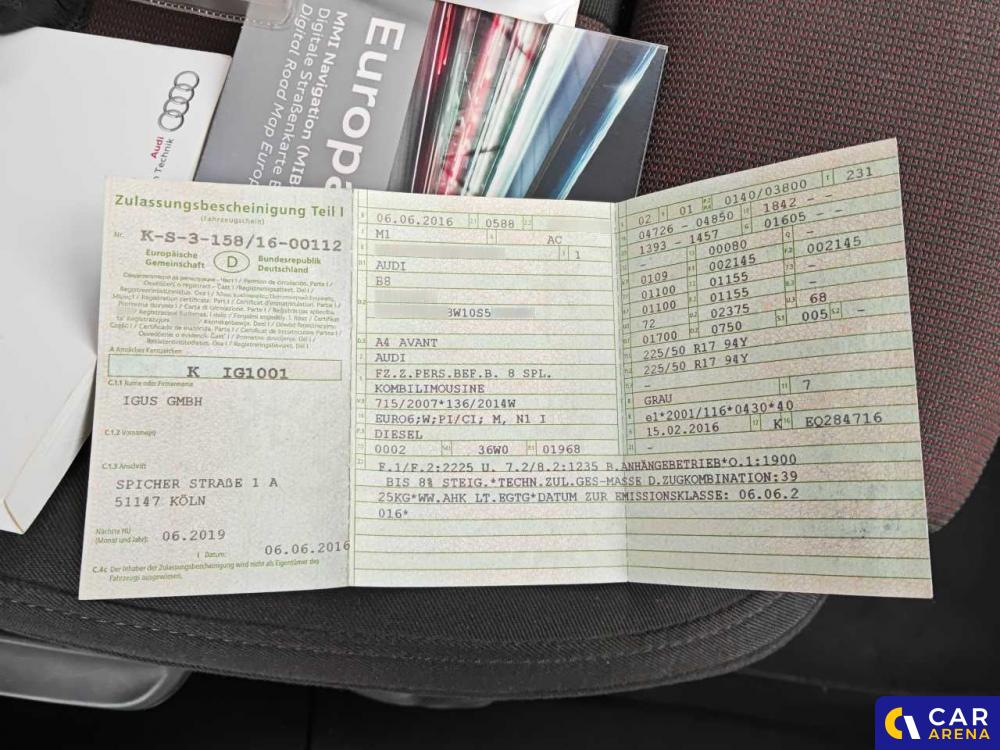 Audi
Technik
Europa
MMI Navigation (MIB
Digitale Straßenkarte E
Digital Road Map Europ
Zulassungsbescheinigung Teil I
(Fahrzeugschein)
Nr. K-S-3-158/16-00112
Europäische Gemeinschaft
D
Bundesrepublik Deutschland
A Amtliches Kennzeichen
K IG1001
C.1.1 Name oder Firmenname
IGUS GMBH
C.1.2 Vorname(n)
C.1.3 Anschrift
SPICHER STRAßE 1 A
51147 KÖLN
Nächste HU
(Monat und Jahr): 06.2019
I Datum: 06.06.2016
C.4c Der Inhaber der Zulassungsbescheinigung wird nicht als Eigentümer des
Fahrzeugs ausgewiesen.
06.06.2016 0588
M1 AC
1
AUDI
B8
3W10S5
A4 AVANT
AUDI
FZ.Z.PERS.BEF.B. 8 SPL.
KOMBILIMOUSINE
715/2007*136/2014W
EURO6;W;PI/CI; M, N1 I
DIESEL
0002 36W0 01968
F.1/F.2:2225 U. 7.2/8.2:1235 B.ANHÄNGEBETRIEB*O.1:1900
BIS 8% STEIG.*TECHN.ZUL.GES-MASSE D.ZUGKOMBINATION:39
25KG*WW.AHK LT.EGTG*DATUM ZUR EMISSIONSKLASSE: 06.06.2
016*
02 01 0140/03800 231
04726 - 04850 1842 - -
1393 - 1457 01605 -
- 00080 -
0109 002145 002145
01100 01155 -
01100 01155 -
72 02375 68
01700 0750 005 -
225/50 R17 94Y
225/50 R17 94Y
-
GRAU 7
e1*2001/116*0430*40
15.02.2016 K EQ284716
-
CAR
ARENA